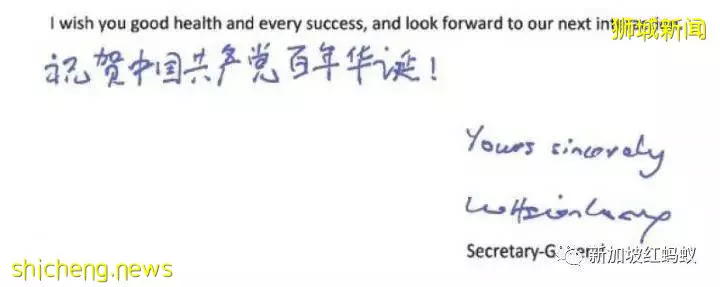 I wish you good health and every success, and look forward to our next
狮城新闻
祝贺中国共产党百年华诞！
Yours sincerely
Secretary-General
shicheng.news
新加坡红蚂蚁